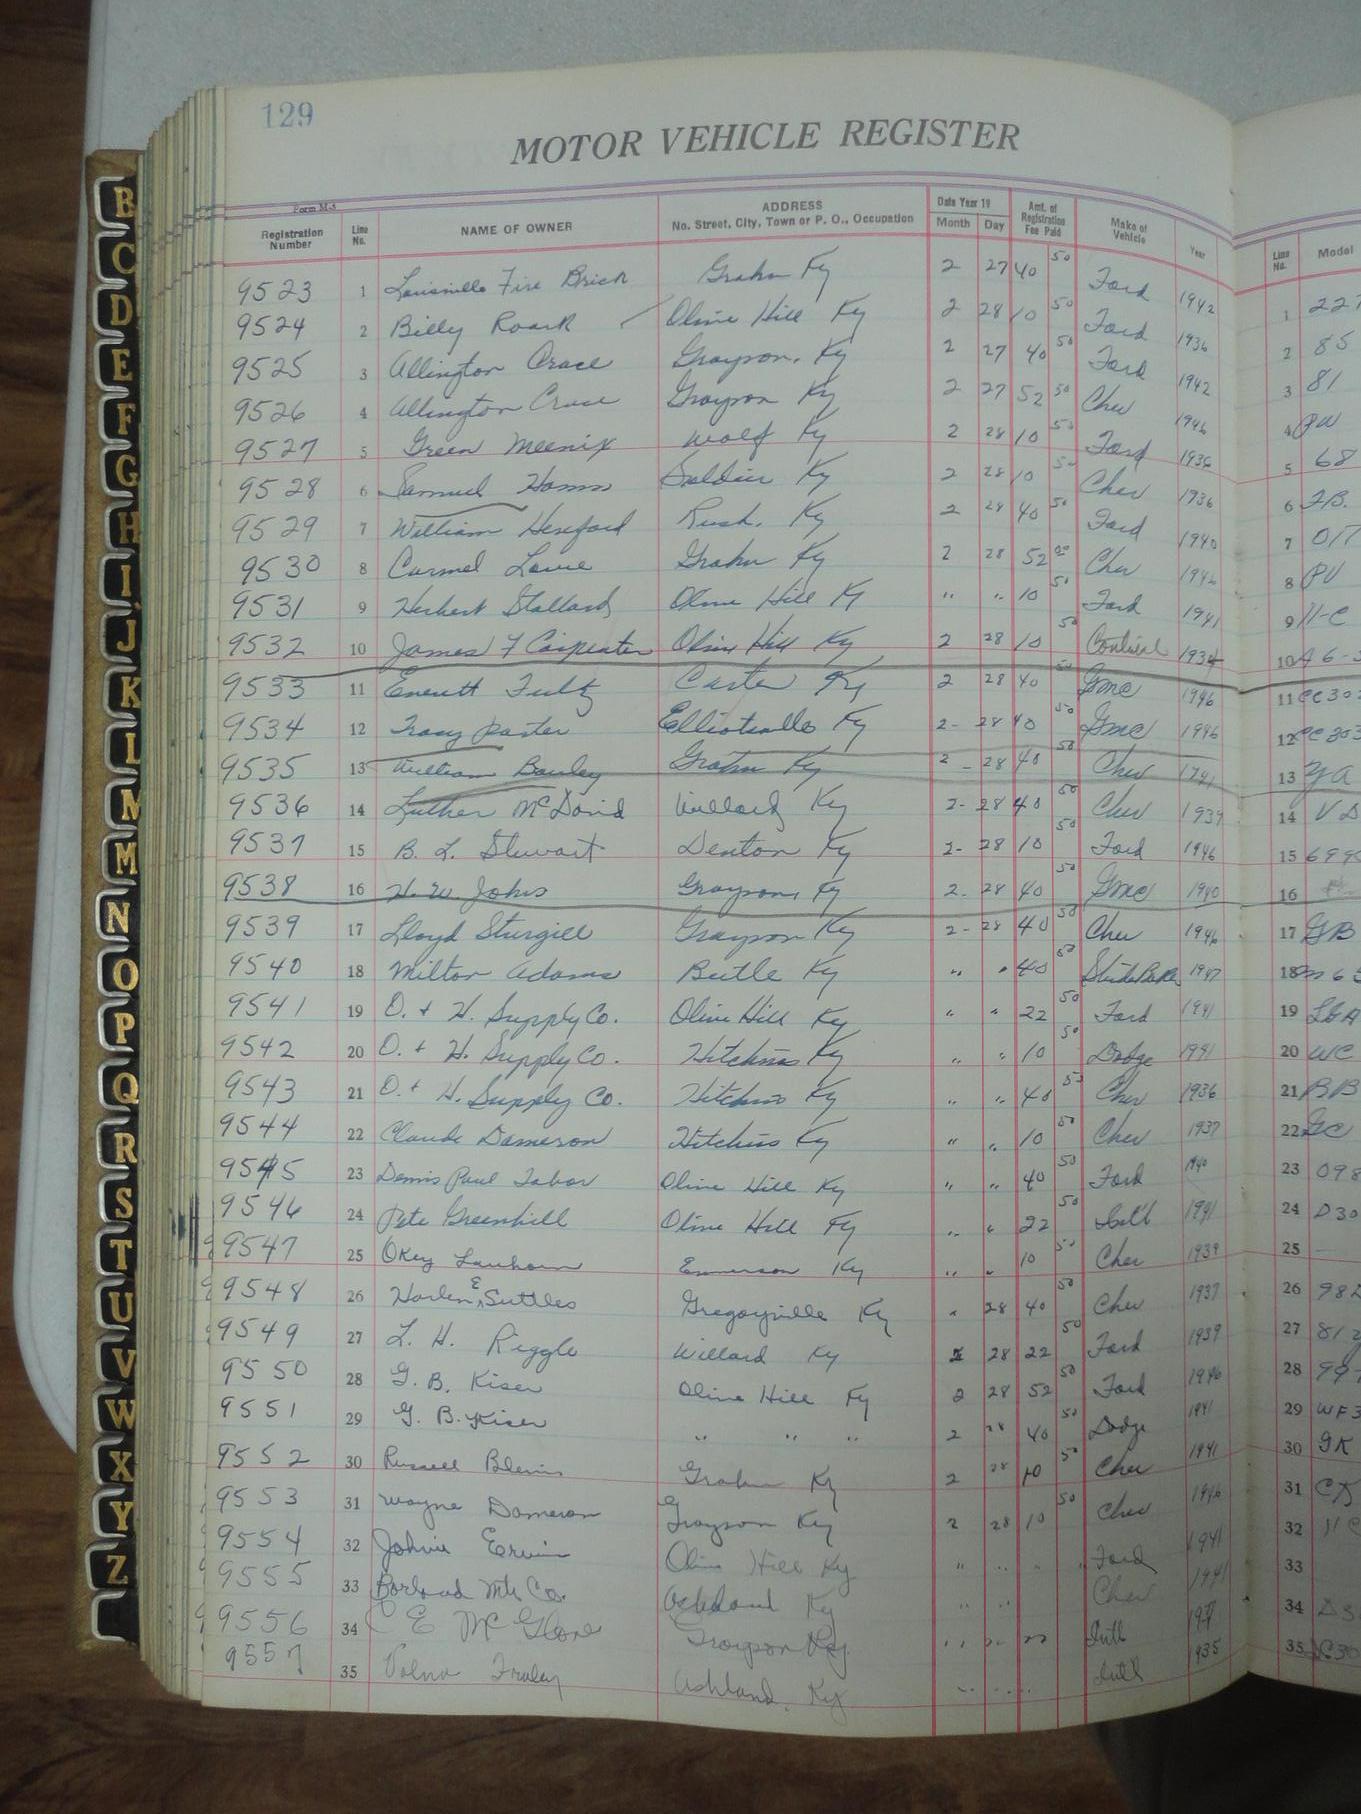 129
MOTOR VEHICLE REGISTER
Form M-5
Registration Number Line No. NAME OF OWNER ADDRESS No. Street, City, Town or P. O., Occupation Date Year 19 Month Day Amt. of Registration Fee Paid Make of Vehicle Year Line No. Model
9523 1 Louisville Fire Brick Grahn Ky 2 27 40 50 Ford 1942 1 227
9524 2 Billy Roark Olive Hill Ky 2 28 10 50 Ford 1936 2 85
9525 3 Allington Crace Grayson, Ky 2 27 40 50 Ford 1942 3 81
9526 4 Allington Crace Grayson Ky 2 27 52 50 Chev 1946 4 PW
9527 5 Green Meenix Wolf Ky 2 28 10 50 Ford 1936 5 68
9528 6 Samuel Hamm Soldier Ky 2 28 10 50 Chev 1936 6
9529 7 William Hereford Rush, Ky 2 28 40 50 Ford 1940 7
9530 8 Carmel Lowe Grahn Ky 2 28 52 Chev 1946 8
9531 9 Herbert Stallard Olive Hill Ky " " 10 50 Ford 1941 9 11-C
9532 10 James F Carpenter Olive Hill Ky 2 28 10 50 1934 10
9533 11 Everett Fultz Carter Ky 2 28 40 50 GMC 1946 11 CC303
9534 12 Tracy Porter Elliottville Ky 2- 28 40 50 GMC 1946 12 CC303
9535 13 William Grahn Ky 2 - 28 40 50 Chev 1941 13 YA
9536 14 Luther McDavid Willard Ky 2- 28 40 50 Chev 1939 14 VD
9537 15 B. L. Stewart Denton Ky 2- 28 10 50 Ford 1946 15 699
9538 16 H. W. Johns Grayson, Ky 2- 28 40 50 GMC 1940 16
9539 17 Lloyd Sturgill Grayson Ky 2- 28 40 50 Chev 1946 17
9540 18 Milton Adams Ky " " 40 50 Studebaker 1947 18
9541 19 O. + H. Supply Co. Olive Hill Ky " " 22 50 Ford 1941 19
9542 20 O. + H. Supply Co. Hitchins Ky " " 10 50 Dodge 1941 20 WC
9543 21 O. + H. Supply Co. Hitchins Ky " " 40 50 Chev 1936 21
9544 22 Claude Dameron Hitchins Ky " " 10 50 Chev 1937 22 GC
9545 23 Dennis Paul Tabor Olive Hill Ky " " 40 50 Ford 1940 23 098
9546 24 Pete Greenhill Olive Hill Ky " " 22 50 Intl 1941 24 D30
9547 25 Okey Lanham Emerson Ky " " 10 50 Chev 1939 25
9548 26 Harlen E. Suttles Gregoryville Ky " 28 40 50 Chev 1937 26
9549 27 L. H. Riggle Willard Ky 2 28 22 50 Ford 1939 27
9550 28 G. B. Kiser Olive Hill Ky 2 28 52 50 Ford 1946 28
9551 29 G. B. Kiser " " " 2 28 40 50 Dodge 1941 29 WF3
9552 30 Russell Blevins Grahn Ky 2 28 10 50 Chev 1941 30
9553 31 Wayne Dameron Grayson Ky 2 28 10 50 Chev 1946 31
9554 32 Johnie Ervin Olive Hill Ky " " " " Ford 1941 32
9555 33 Mtr Co. Ashland Ky " " Chev 1941 33
9556 34 C E McGlone Grayson Ky. " " 22 Intl 34
9557 35 Fraley Ashland, Ky Intl 1935 35
B
C
D
E
F
G
H
I
J
K
L
M
M
N
O
P
Q
R
S
T
U
V
W
X
Y
Z